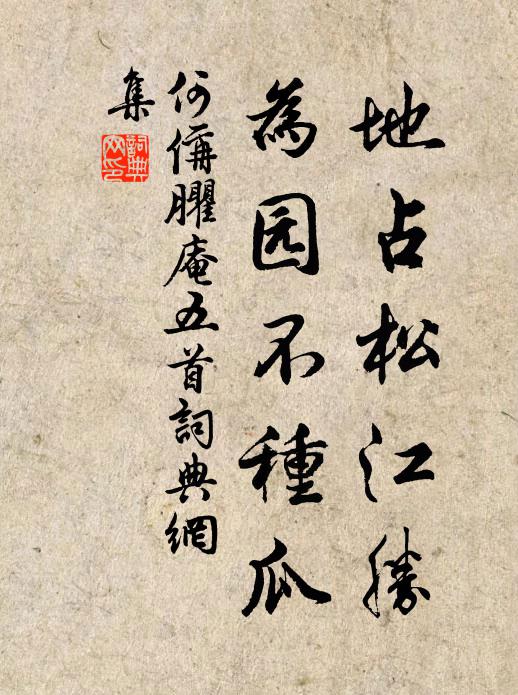 地占松江勝
為园不種瓜
何偁臞庵五首詞典網
集
詞典
网印